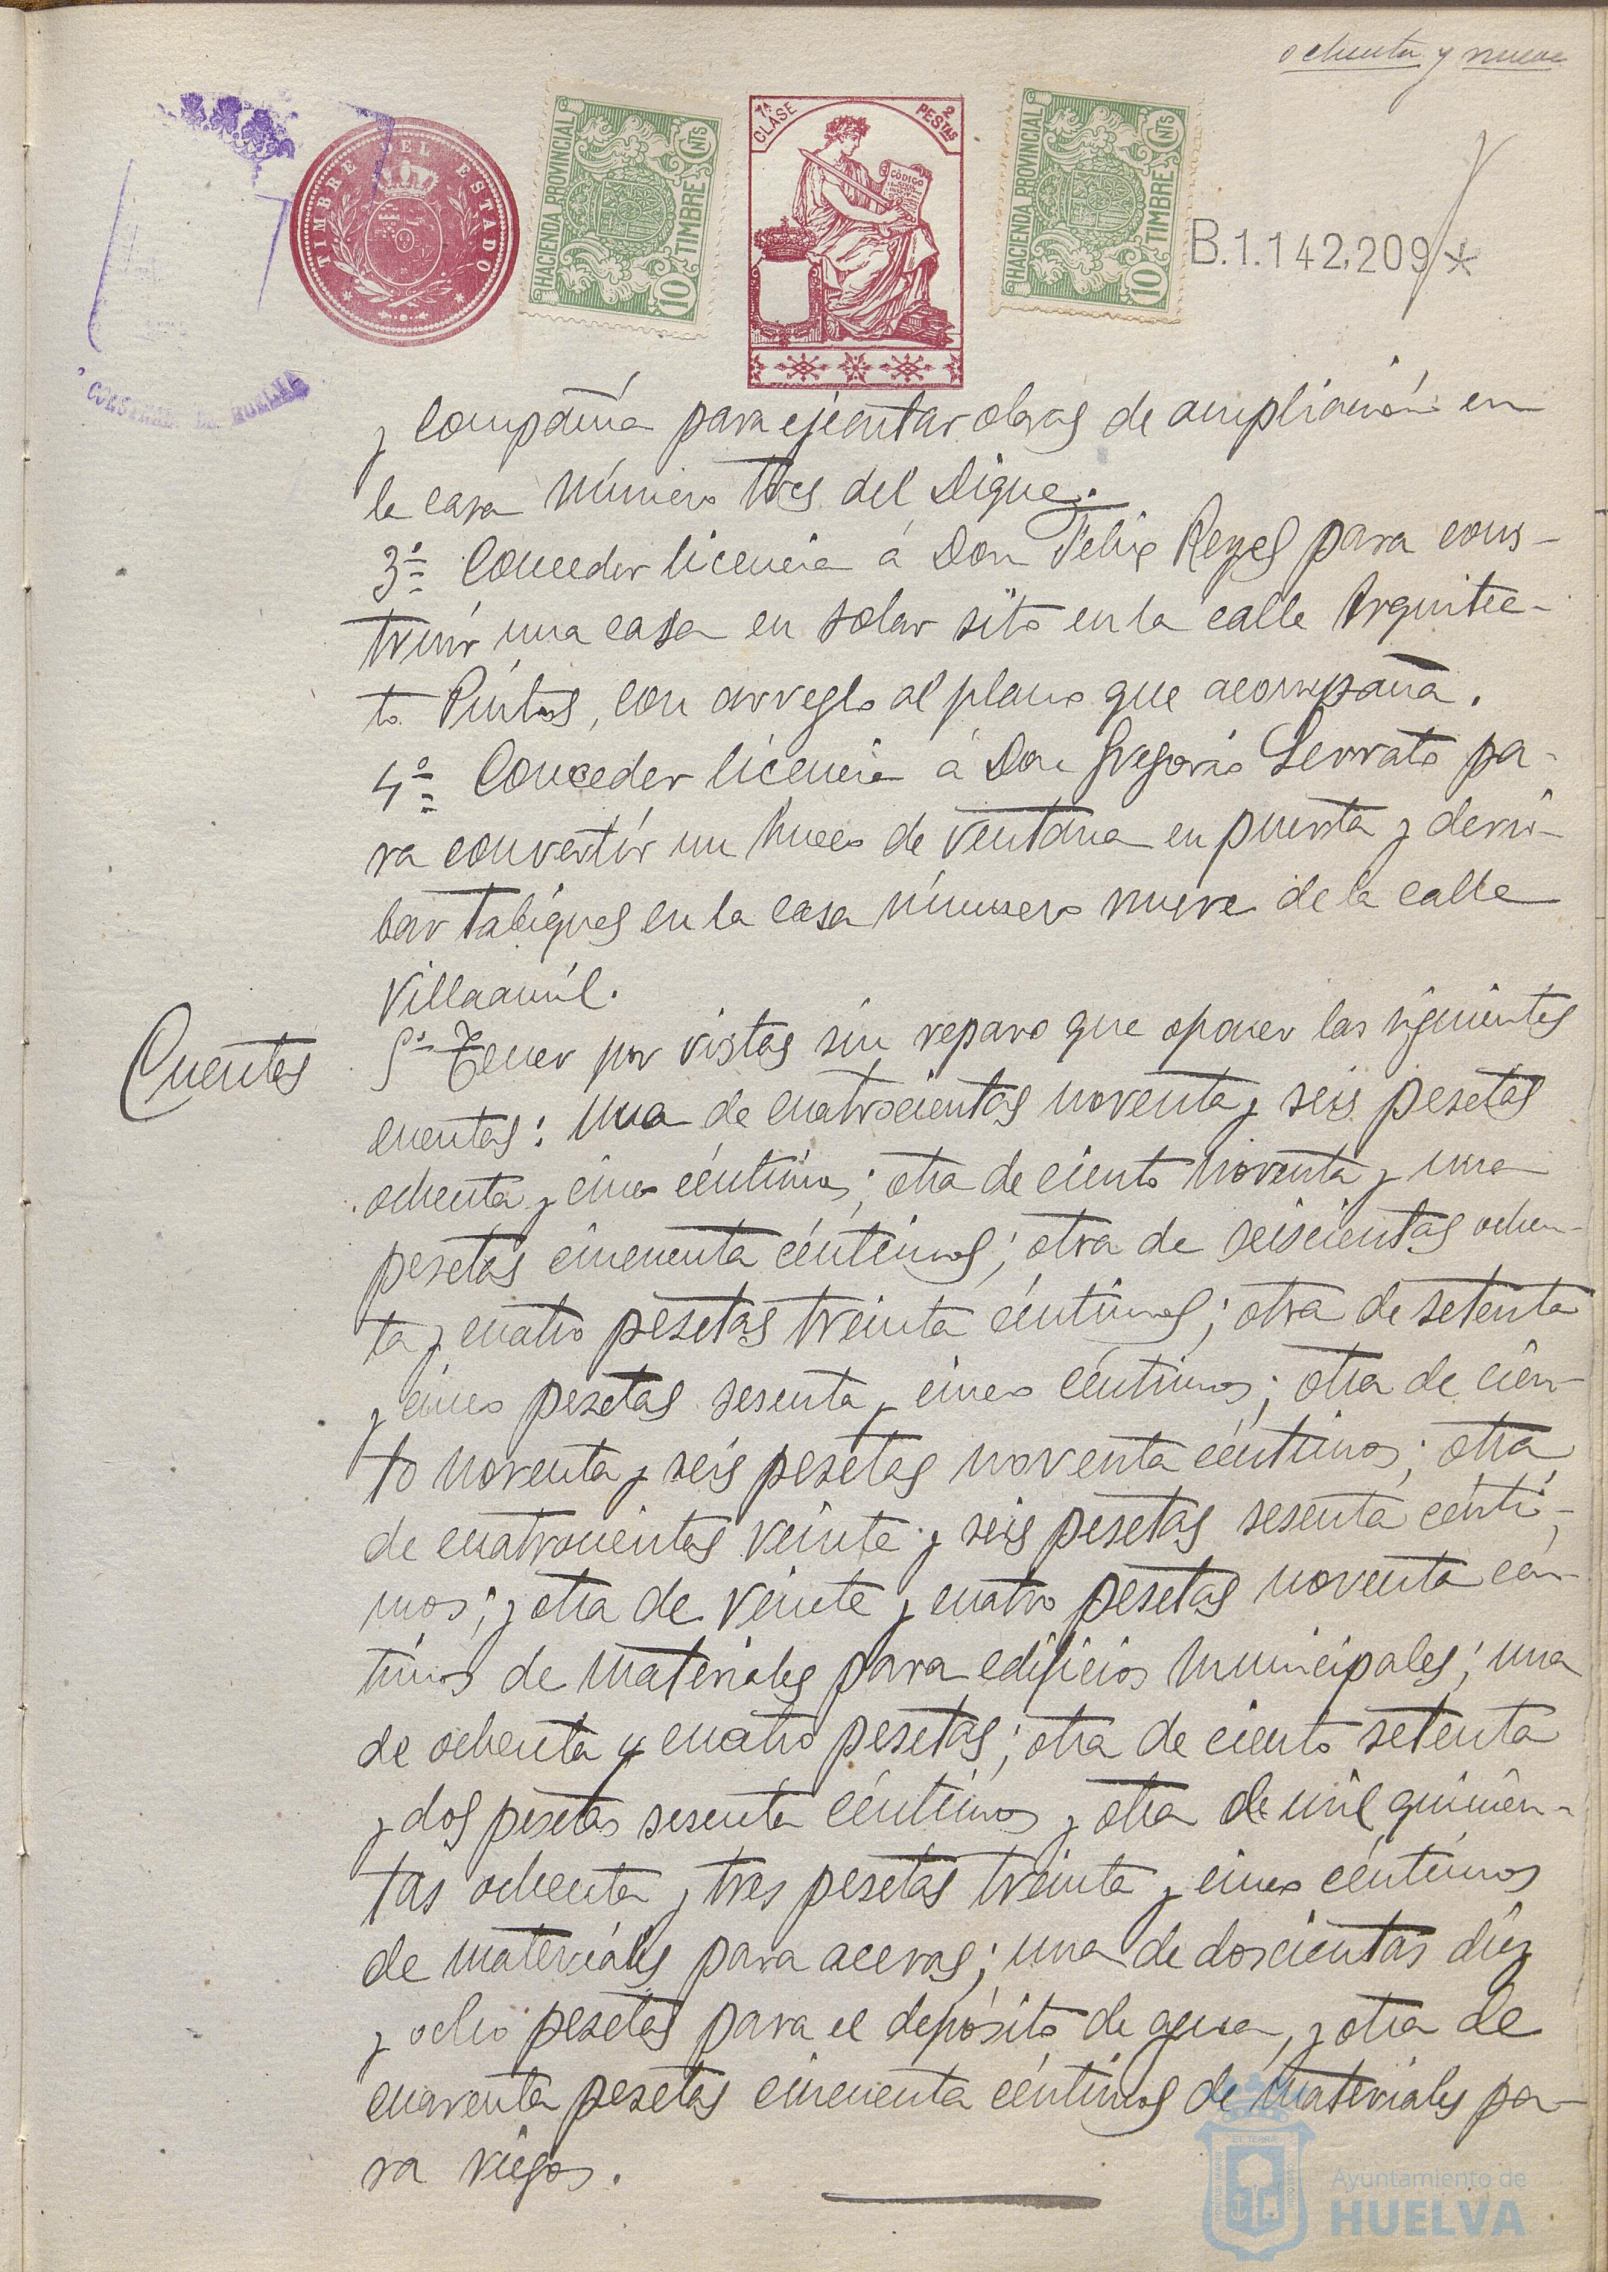 ochenta y nueve
TIMBRE DEL ESTADO
HACIENDA PROVINCIAL
10 CNTS
TIMBRE
1ª CLASE
2 PESTAS
CODIGO
HACIENDA PROVINCIAL
10 CNTS
TIMBRE
B.1.142,209*
HUELVA
y Compañía para ejecutar obras de ampliación en
la casa número tres del Dique.
3º Conceder licencia á Don Felix Reyes para cons-
truir una casa en solar sito en la calle Arquitec-
to Pintos, con arreglo al plano que acompaña.
4º Conceder licencia á Don Gregorio Serrato pa-
ra convertir un hueco de ventana en puerta y derri-
bar tabiques en la casa número nueve de la calle
Villaamil.
Cuentas
5º Tener por vistas sin reparo que oponer las siguientes
cuentas: una de cuatrocientas noventa y seis pesetas
ochenta y cinco céntimos; otra de ciento noventa y una
pesetas cincuenta céntimos; otra de seiscientas ochen-
ta y cuatro pesetas treinta céntimos; otra de setenta
y cinco pesetas sesenta y cinco céntimos; otra de cien-
to noventa y seis pesetas noventa céntimos; otra
de cuatrocientas veinte y seis pesetas sesenta cénti-
mos; y otra de veinte y cuatro pesetas noventa cén-
timos de materiales para edificios municipales; una
de ochenta y cuatro pesetas; otra de ciento setenta
y dos pesetas sesenta céntimos y otra de mil quinien-
tas ochenta y tres pesetas treinta y cinco céntimos
de materiales para aceras; una de doscientas diez
y ocho pesetas para el depósito de agua, y otra de
cuarenta pesetas cincuenta céntimos de materiales pa-
ra riegos.
Ayuntamiento de
HUELVA